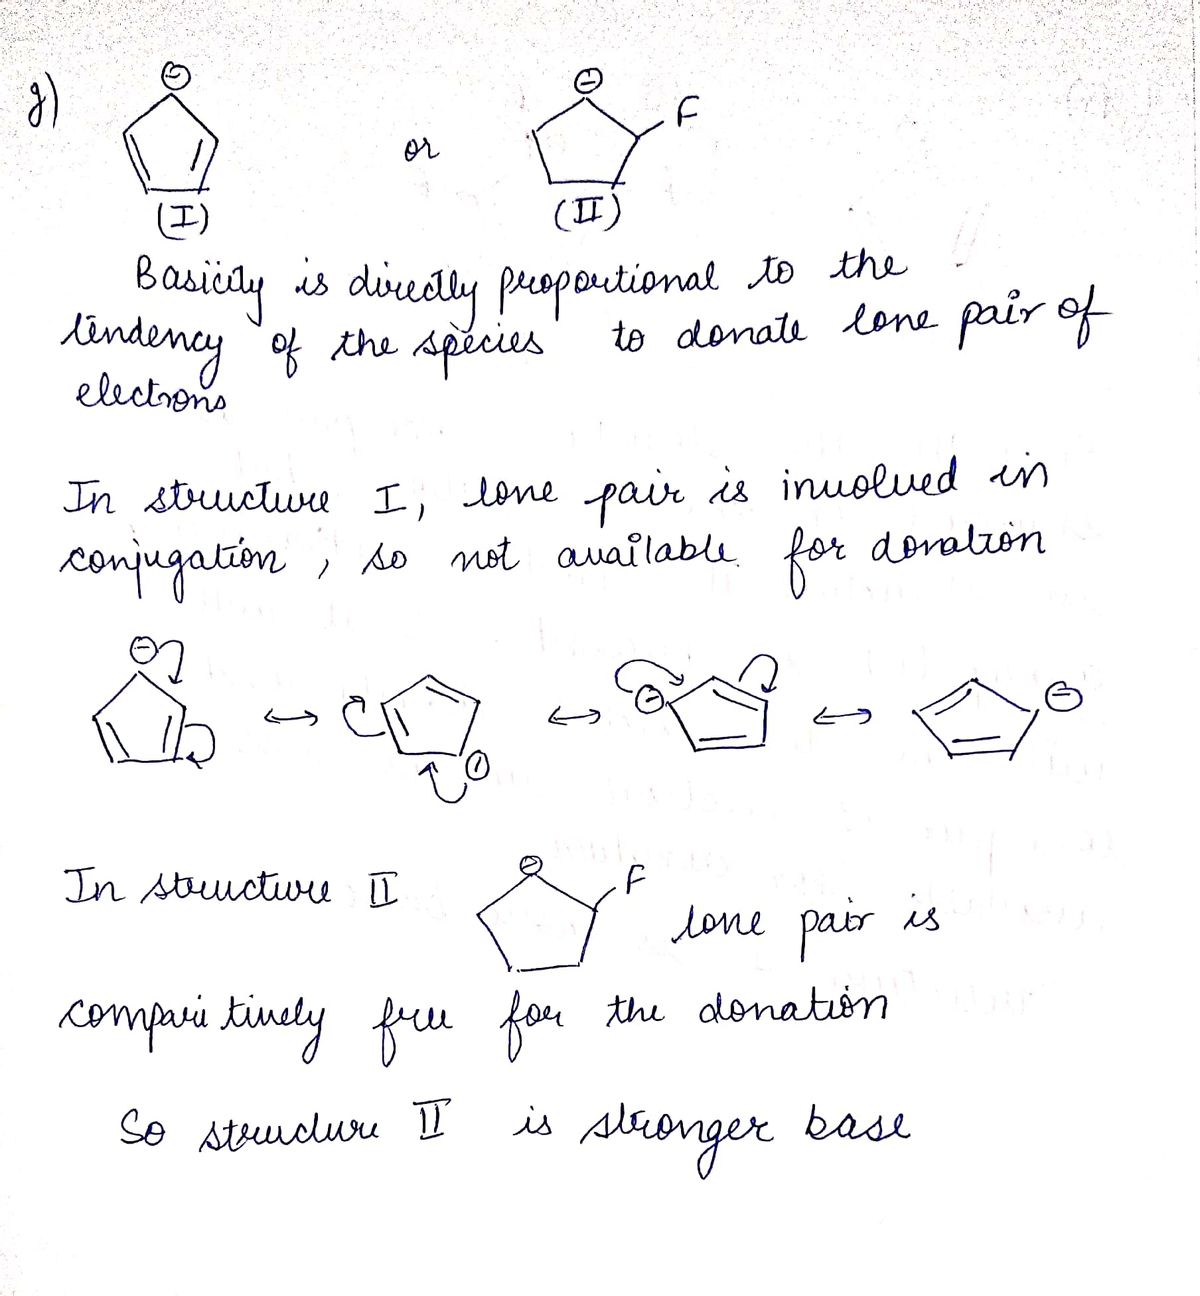 g)
⊖ ⊖ F
or
(I) (II)
Basicity is directly proportional to the
tendency of the species to donate lone pair of
electrons
In structure I, lone pair is involved in
conjugation, so not available for donation
⊖ ↔ ⊖ ↔ ⊖ ↔ ⊖
In structure II ⊖ F lone pair is
comparitively free for the donation
So structure II is stronger base